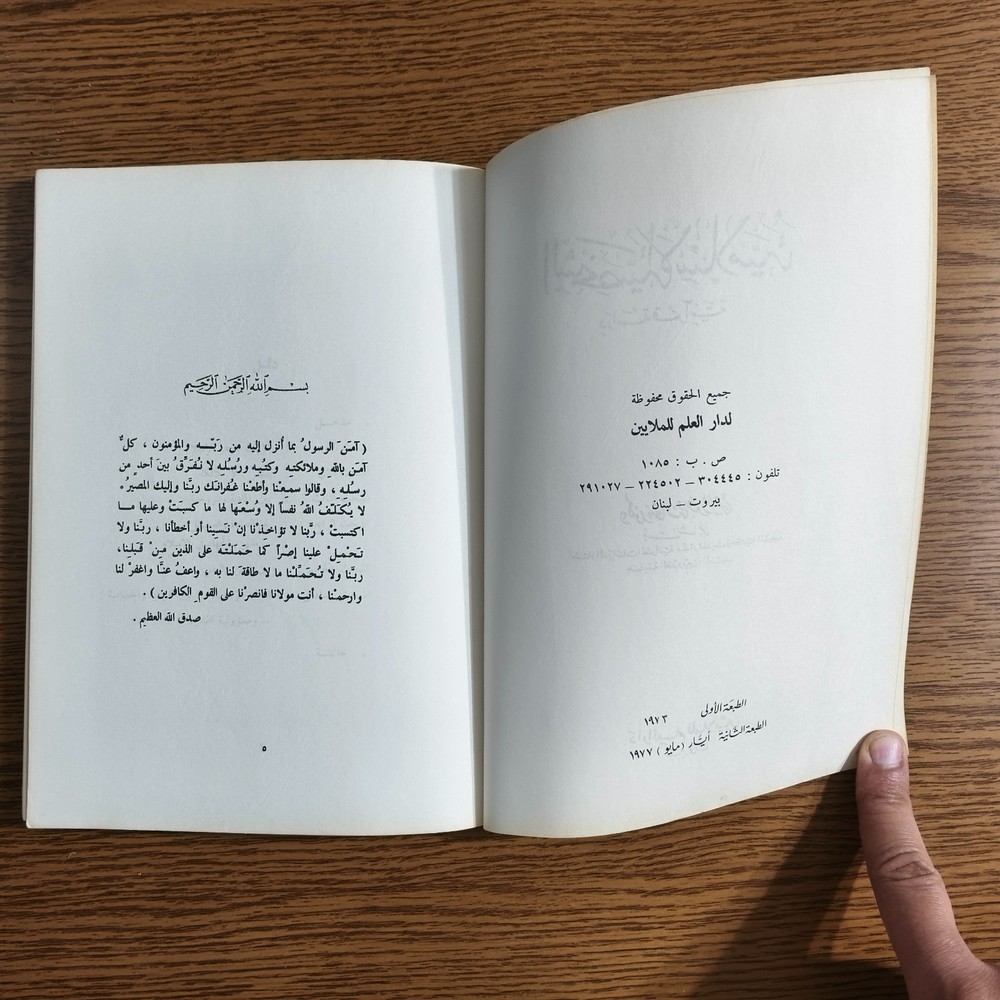 جميع الحقوق محفوظة
لدار العلم للملايين
ص . ب : ١٠٨٥
تلفون : ٣٠٤٤٤٥ – ٢٢٤٥٠٢ – ٢٩١٠٢٧
بيروت – لبنان
الطبعة الأولى ١٩٧٣
الطبعة الثانية أيار (مايو) ١٩٧٧
بسم الله الرحمن الرحيم
( آمَنَ الرسولُ بما أُنزل إليه من رَبّه والمؤمنون ، كلٌّ
آمَن باللهِ وملائكته وكتُبِه ورُسُلِه لا نُفَرِّقُ بينَ أحدٍ من
رسلِه ، وقالوا سمِعْنا وأطعْنا غُفرانَك ربَّنا وإليك المصيرُ .
لا يُكَلِّفُ اللهُ نفساً إلا وُسْعَها لها ما كسبَتْ وعليها مـا
اكتسبتْ ، ربَّنا لا تؤاخِذْنا إنْ نَسِينا أو أخطأنا ، ربَّنا ولا
تَحْمِلْ علينا إصْراً كما حَمَلْتَه على الذين مِنْ قَبلِنا،
ربَّنا ولا تُحَمِّلْنا ما لا طاقةَ لنا به ، واعفُ عنَّا واغفرْ لنا
وارحمْنا ، أنت مولانا فانصرْنا على القومِ الكافرين ) .
صدق الله العظيم .
٥